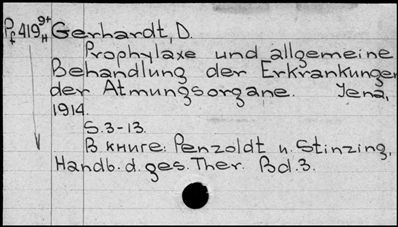 Pf 419 9+ H Gerhardt, D.
Prophylaxe und allgemeine
Behandlung der Erkrankungen
der Atmungsorgane. Jena,
1914.
S.3-13.
В книге: Penzoldt u. Stinzing,
Handb. d. ges. Ther. Bd.3.